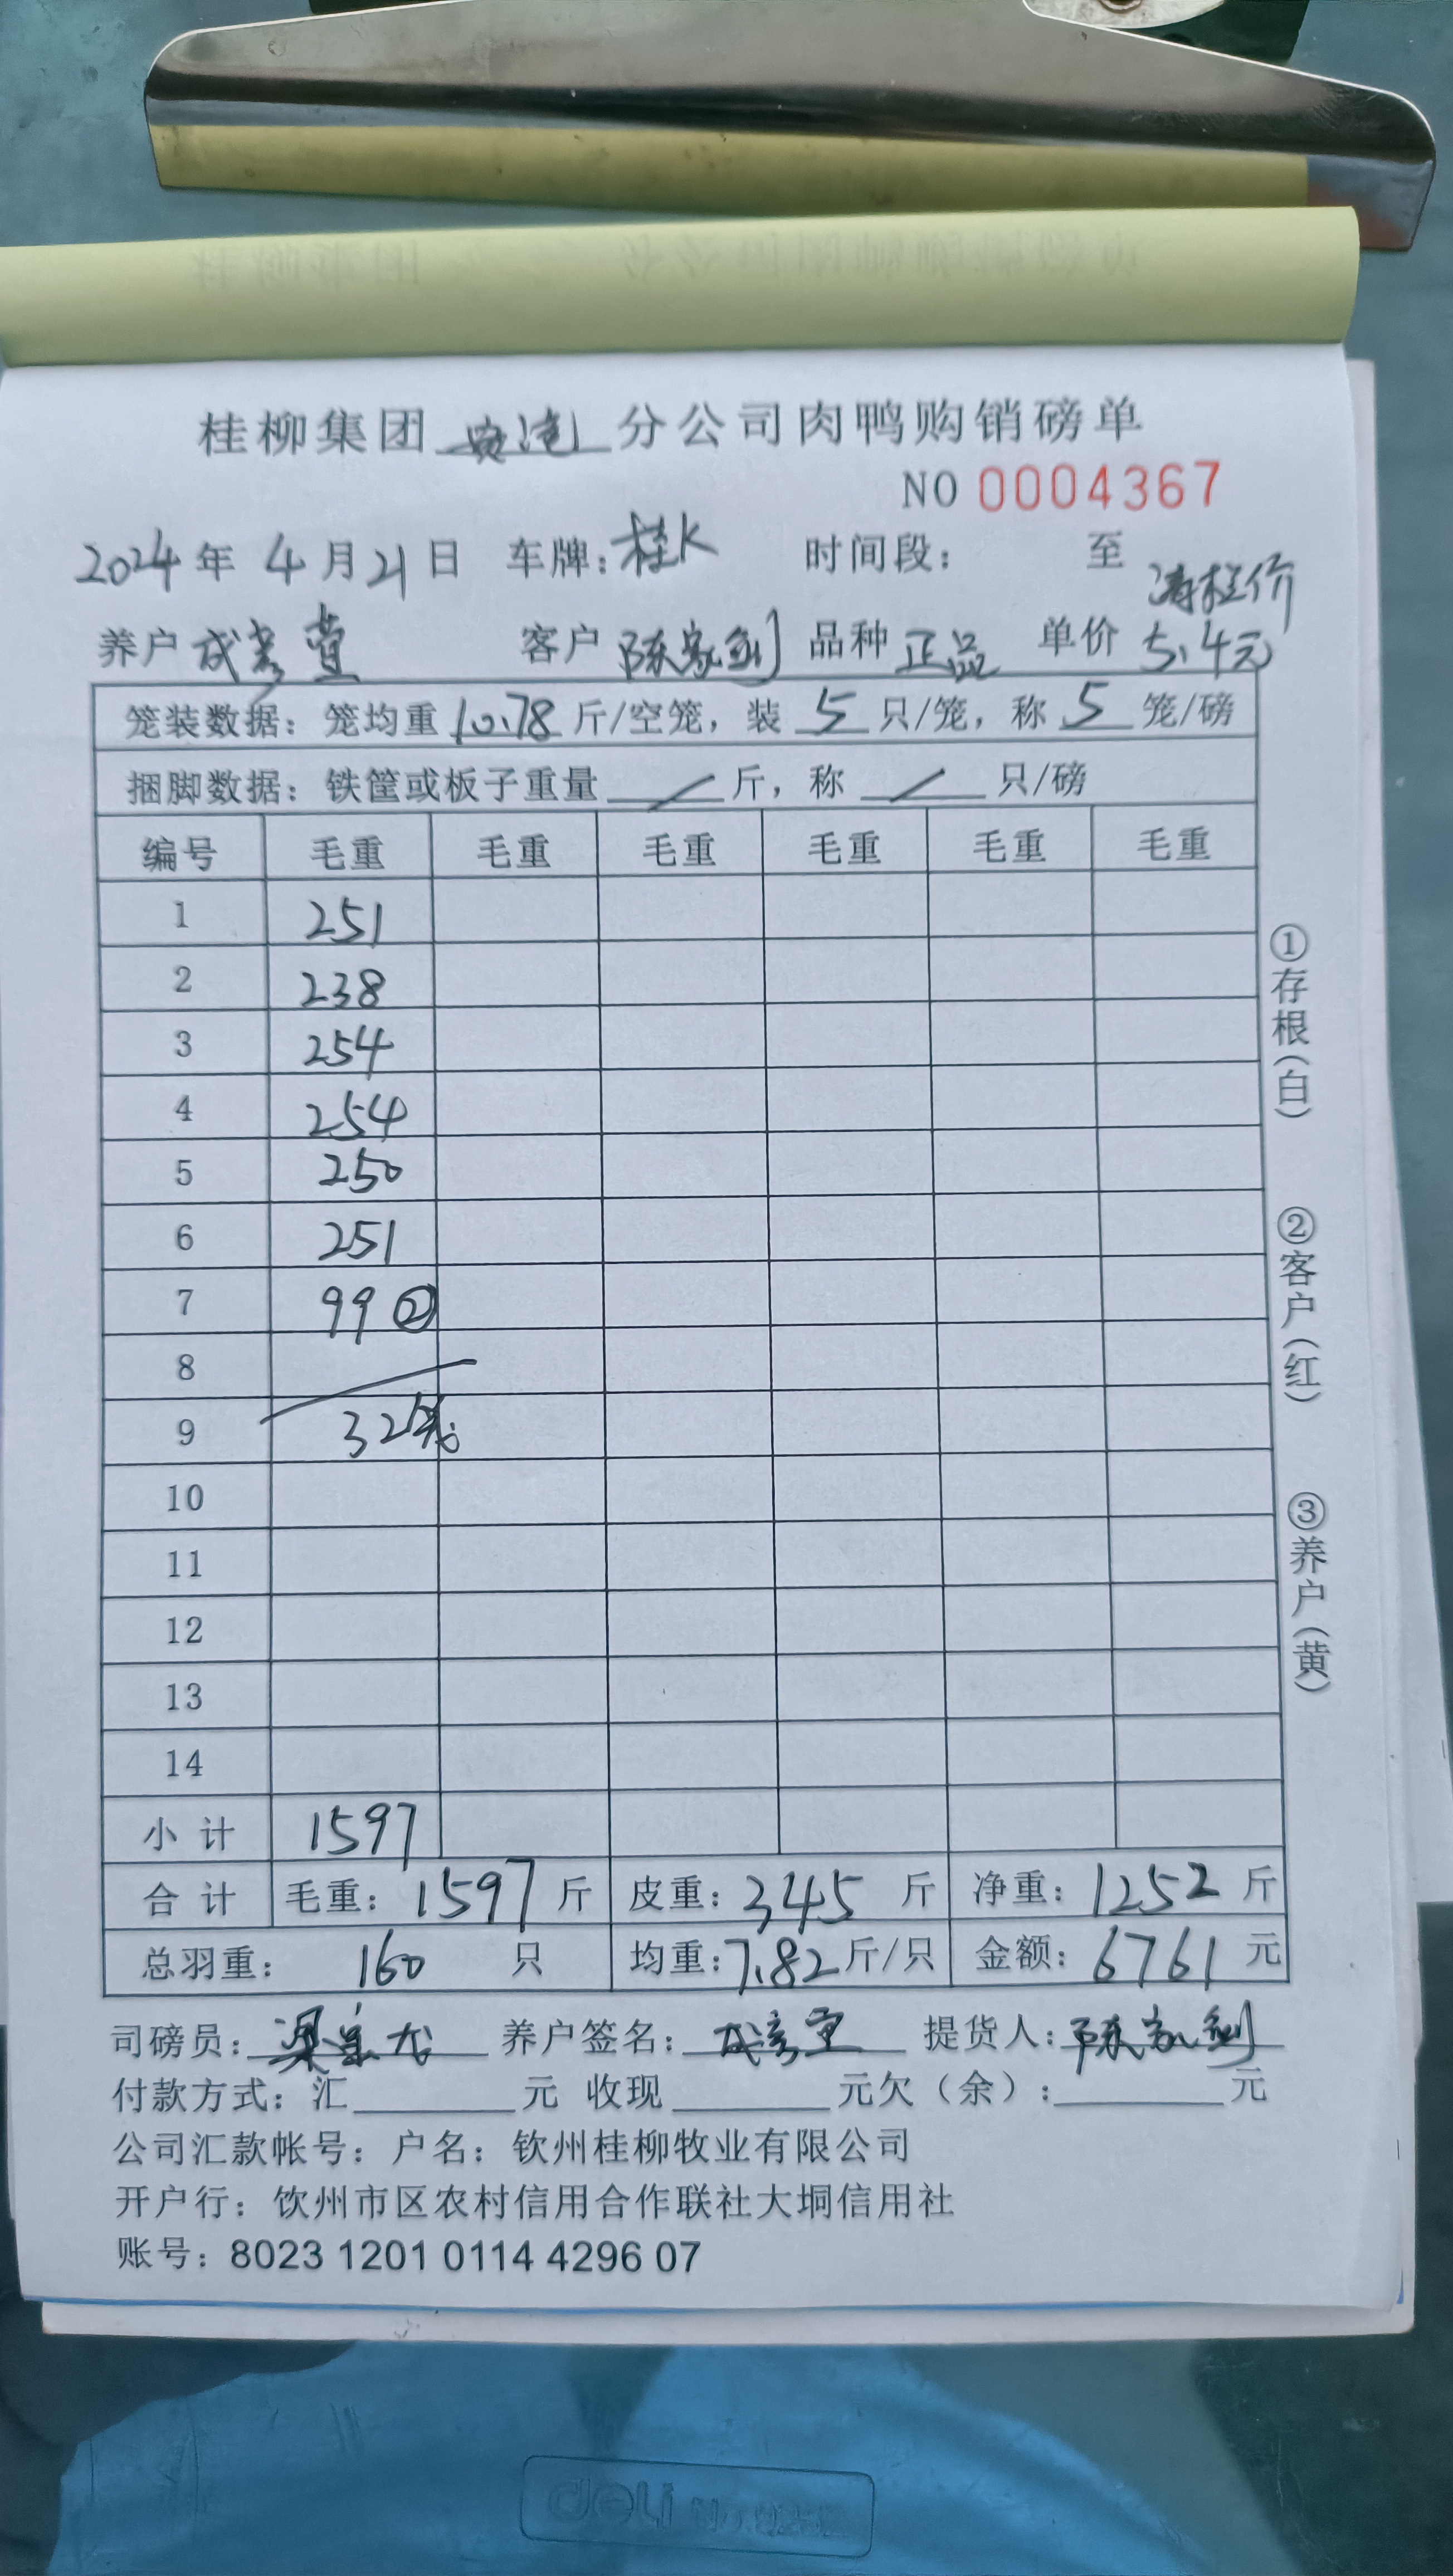 桂柳集团 分公司肉鸭购销磅单
NO 0004367
2024年 4月21日 车牌:桂K 时间段: 至
清栏价
养户 成 客户 陈家剑 品种 正品 单价 5.4元
笼装数据: 笼均重 10.78 斤/空笼, 装 5 只/笼, 称 5 笼/磅
捆脚数据: 铁筐或板子重量 / 斤, 称 / 只/磅
编号 毛重 毛重 毛重 毛重 毛重 毛重
1 251
2 238
3 254
4 254
5 250
6 251
7 99 ②
8
9 32笼
10
11
12
13
14
小计 1597
合计 毛重: 1597 斤 皮重: 345 斤 净重: 1252 斤
总羽重: 160 只 均重: 7.82 斤/只 金额: 6761 元
司磅员: 梁 龙 养户签名: 成 提货人: 陈家剑
付款方式: 汇 元 收现 元欠（余）: 元
公司汇款帐号: 户名: 钦州桂柳牧业有限公司
开户行: 钦州市区农村信用合作联社大垌信用社
账号: 8023 1201 0114 4296 07
①存根（白）
②客户（红）
③养户（黄）
deli